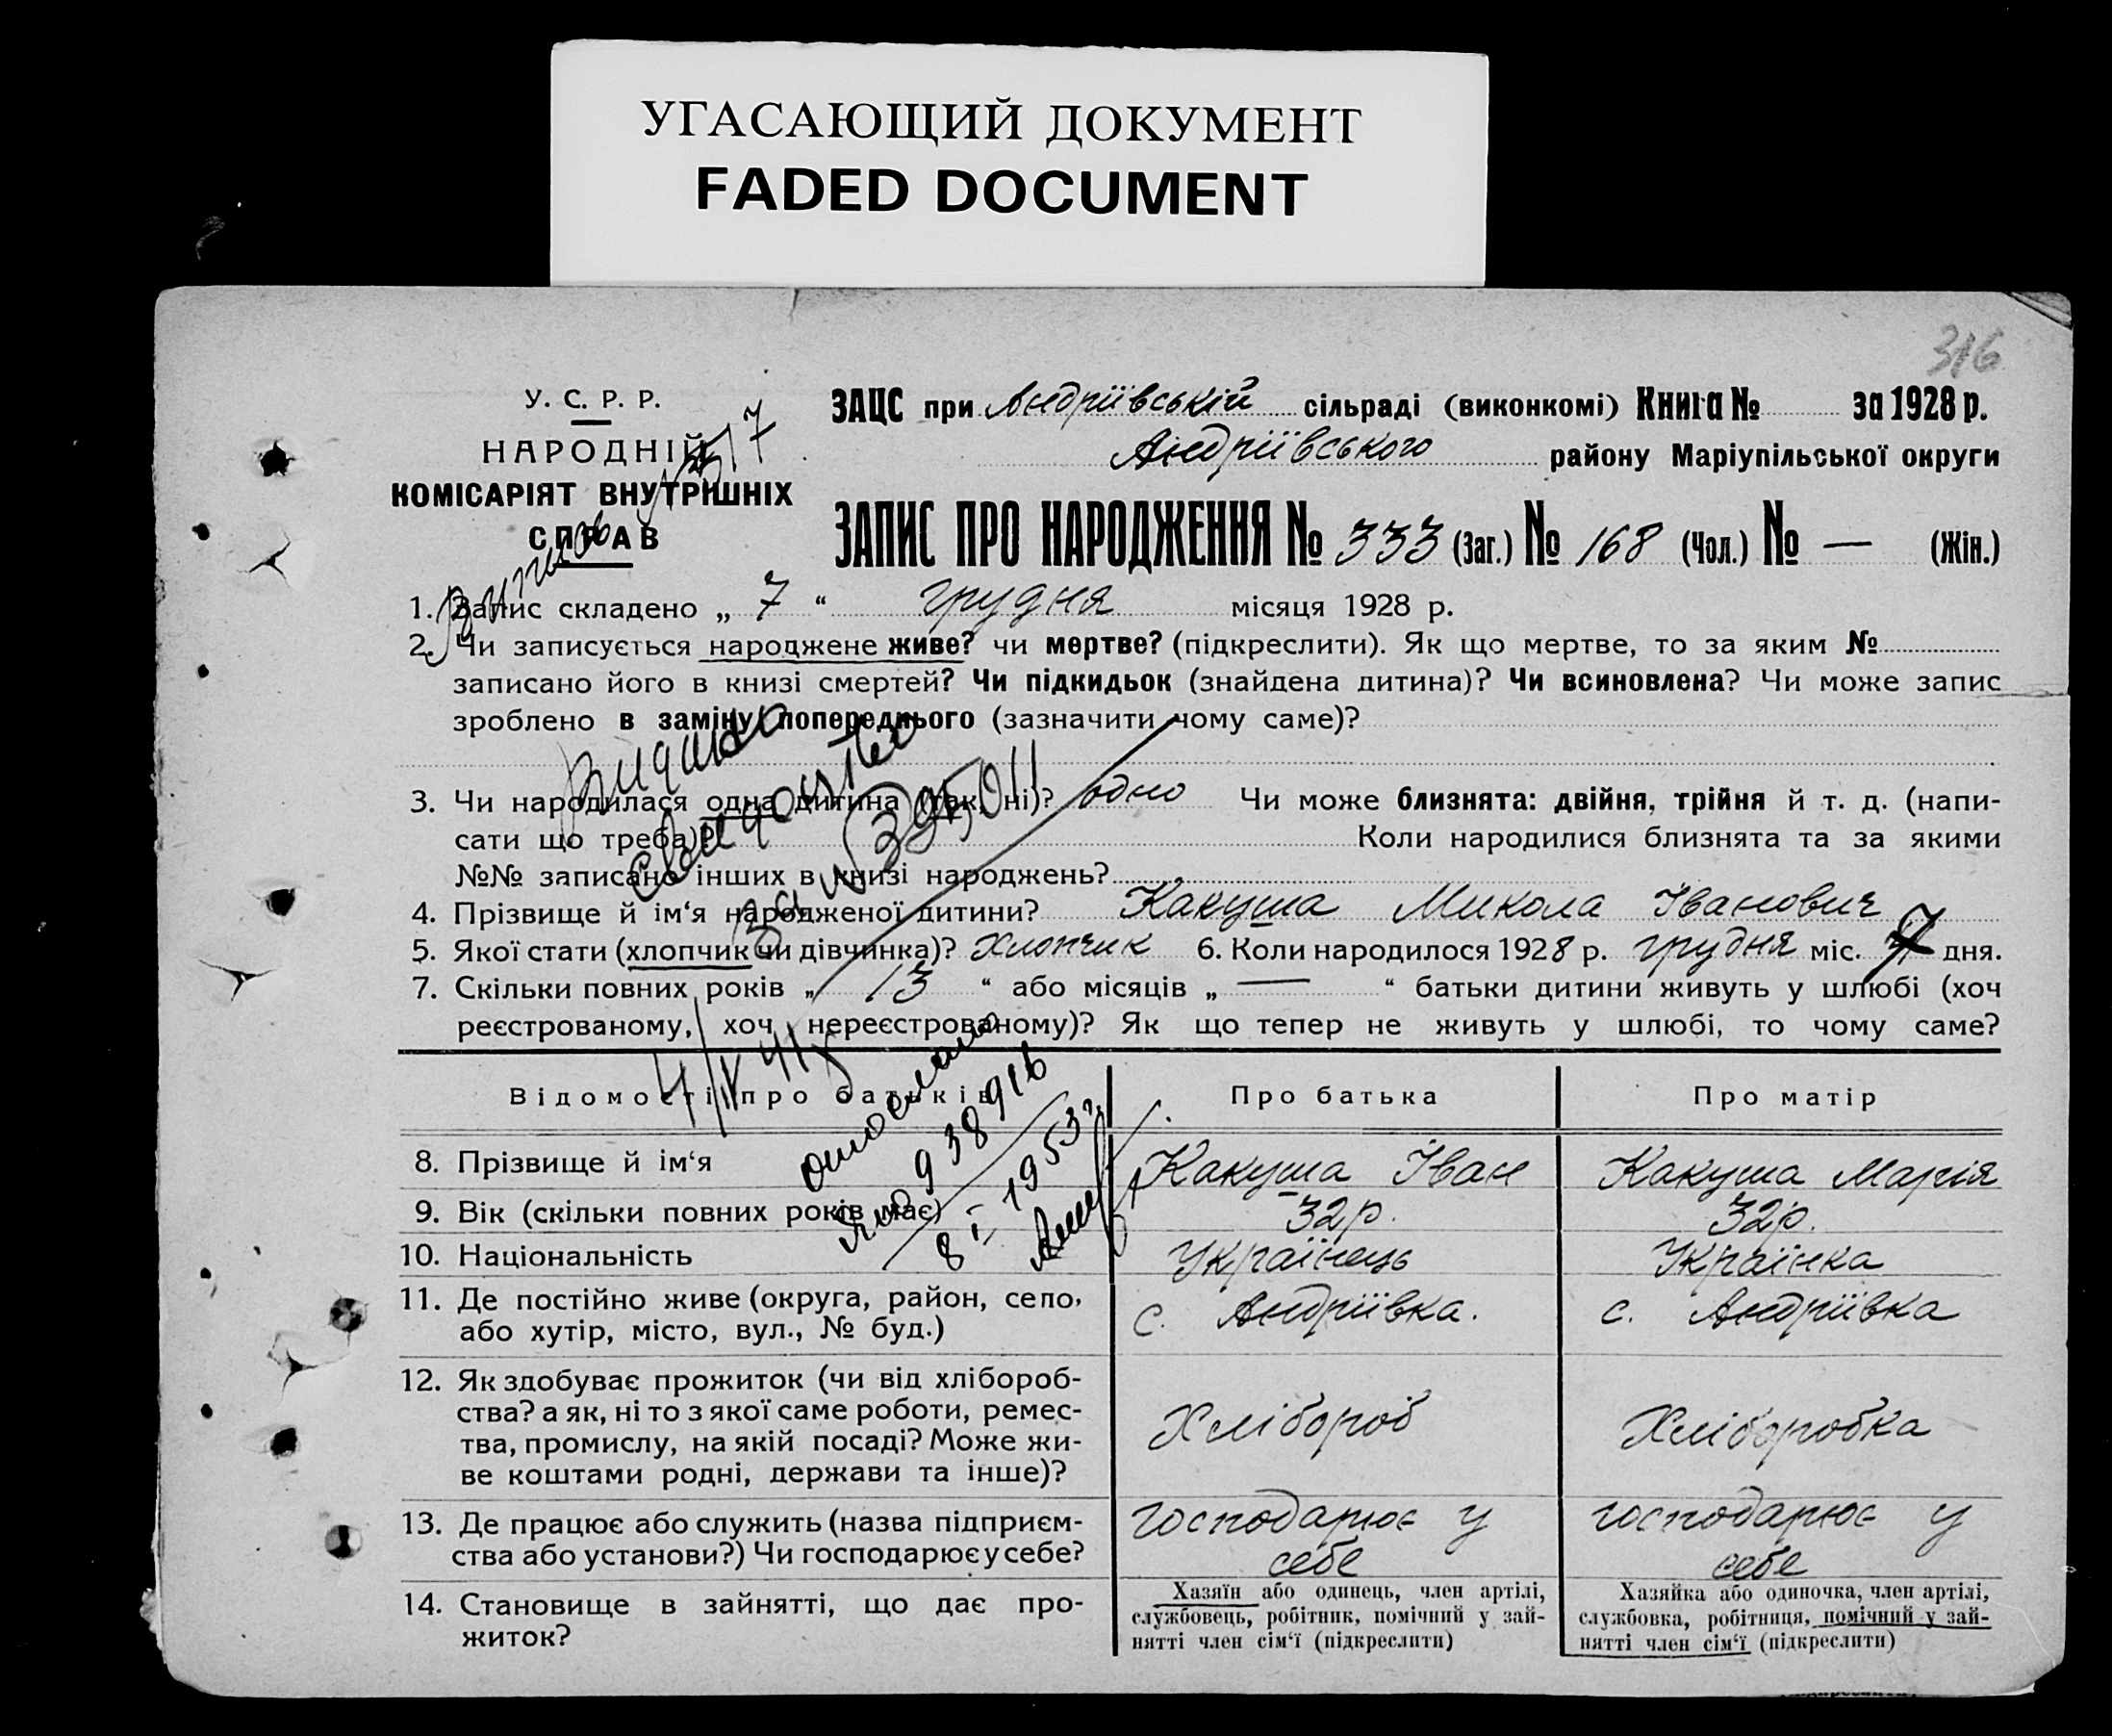 УГАСАЮЩИЙ ДОКУМЕНТ
FADED DOCUMENT
316
У. С. Р. Р.
НАРОДНІЙ
КОМІСАРІЯТ ВНУТРІШНІХ
СПРАВ
ЗАЦС при Андріївській сільраді (виконкомі) Книга № за 1928 р.
Андріївського району Маріупільської округи
ЗАПИС ПРО НАРОДЖЕННЯ № 333 (Заг.) № 168 (Чол.) № — (Жін.)
1. Запис складено „ 7 “ грудня місяця 1928 р.
2. Чи записується народжене живе? чи мертве? (підкреслити). Як що мертве, то за яким №
записано його в книзі смертей? Чи підкидьок (знайдена дитина)? Чи всиновлена? Чи може запис
зроблено в заміну попереднього (зазначити чому саме)?
3. Чи народилася одна дитина (так, ні)? одно Чи може близнята: двійня, трійня й т. д. (напи-
сати що треба)? Коли народилися близнята та за якими
№№ записано інших в книзі народжень?
4. Прізвище й ім‘я народженої дитини? Какуша Микола Іванович
5. Якої стати (хлопчик чи дівчинка)? Хлопчик 6. Коли народилося 1928 р. грудня міс. 7 дня.
7. Скільки повних років „ 13 “ або місяців „ — “ батьки дитини живуть у шлюбі (хоч
реєстрованому, хоч нереєстрованому)? Як що тепер не живуть у шлюбі, то чому саме?
Видано
свидоцтво
За №
938916
1953 г.
Відомості про батьків Про батька Про матір
8. Прізвище й ім‘я Какуша Іван Какуша Марія
9. Вік (скільки повних років має) 32 р. 32 р.
10. Національність Українець Українка
11. Де постійно живе (округа, район, село,
або хутір, місто, вул., № буд.) с. Андріївка. с. Андріївка
12. Як здобуває прожиток (чи від хлібороб-
ства? а як, ні то з якої саме роботи, ремес-
тва, промислу, на якій посаді? Може жи-
ве коштами родні, держави та інше)? Хлібороб Хліборобка
13. Де працює або служить (назва підприєм-
ства або установи?) Чи господарює у себе? господарює у себе господарює у себе
14. Становище в зайнятті, що дає про-
житок?
Хазяїн або одинець, член артілі,
службовець, робітник, помічний у зай-
нятті член сім‘ї (підкреслити)
Хазяйка або одиночка, член артілі,
службовка, робітниця, помічний у зай-
нятті член сім‘ї (підкреслити)